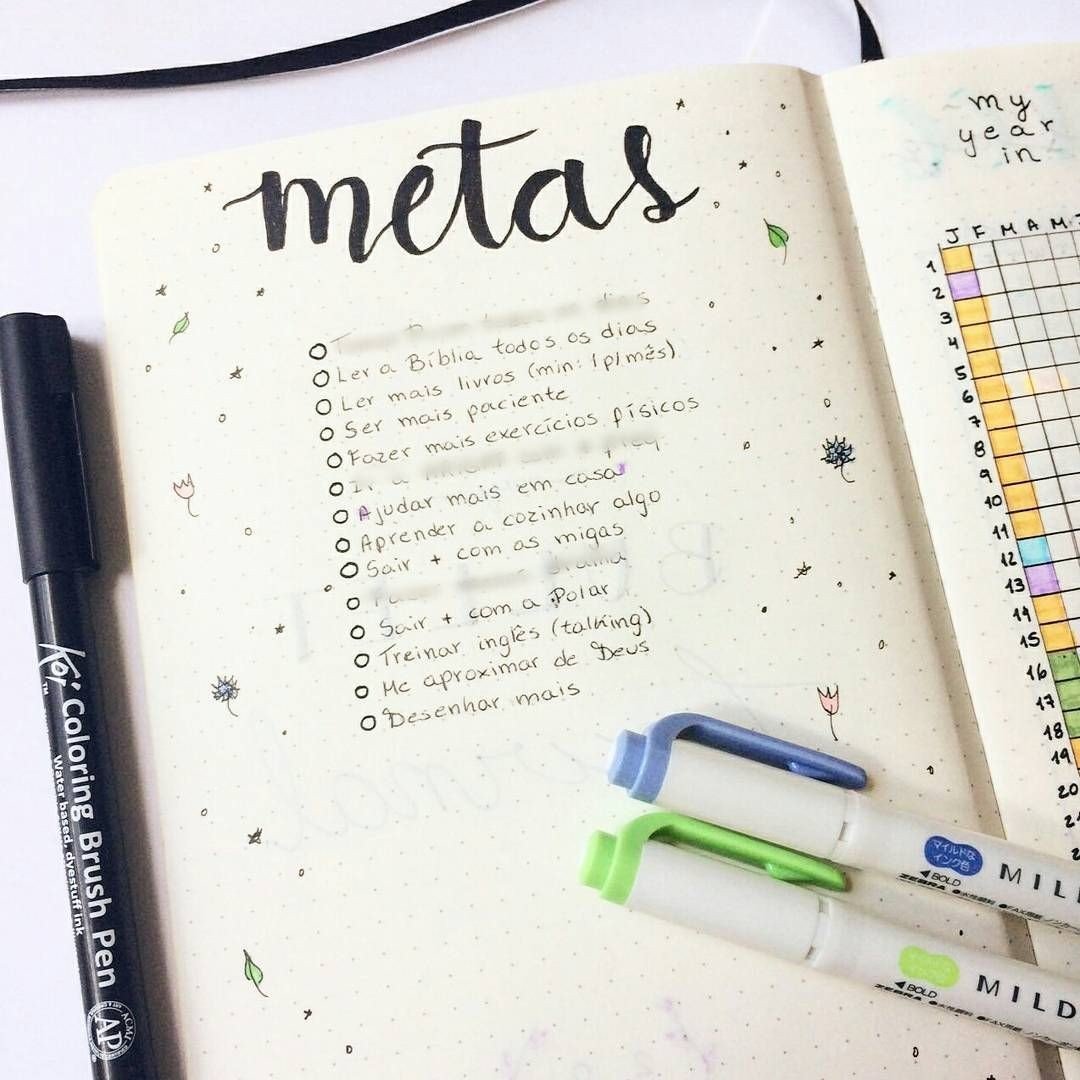 metas
Ler a Bíblia todos os dias
Ler mais livros (min: 1p/mês)
Ser mais paciente
Fazer mais exercícios físicos
Ajudar mais em casa
Aprender a cozinhar algo
Sair + com as migas
Sair + com a Polar
Treinar inglês (talking)
Me aproximar de Deus
Desenhar mais
my
year
in
J F M A M J
1
2
3
4
5
6
7
8
9
10
11
12
13
14
15
16
17
18
19
20
Koi Coloring Brush Pen
TM
Water based, dyestuff ink
AP
マイルドな
インク色
BOLD
ZEBRA
MILD
BOLD
ZEBRA